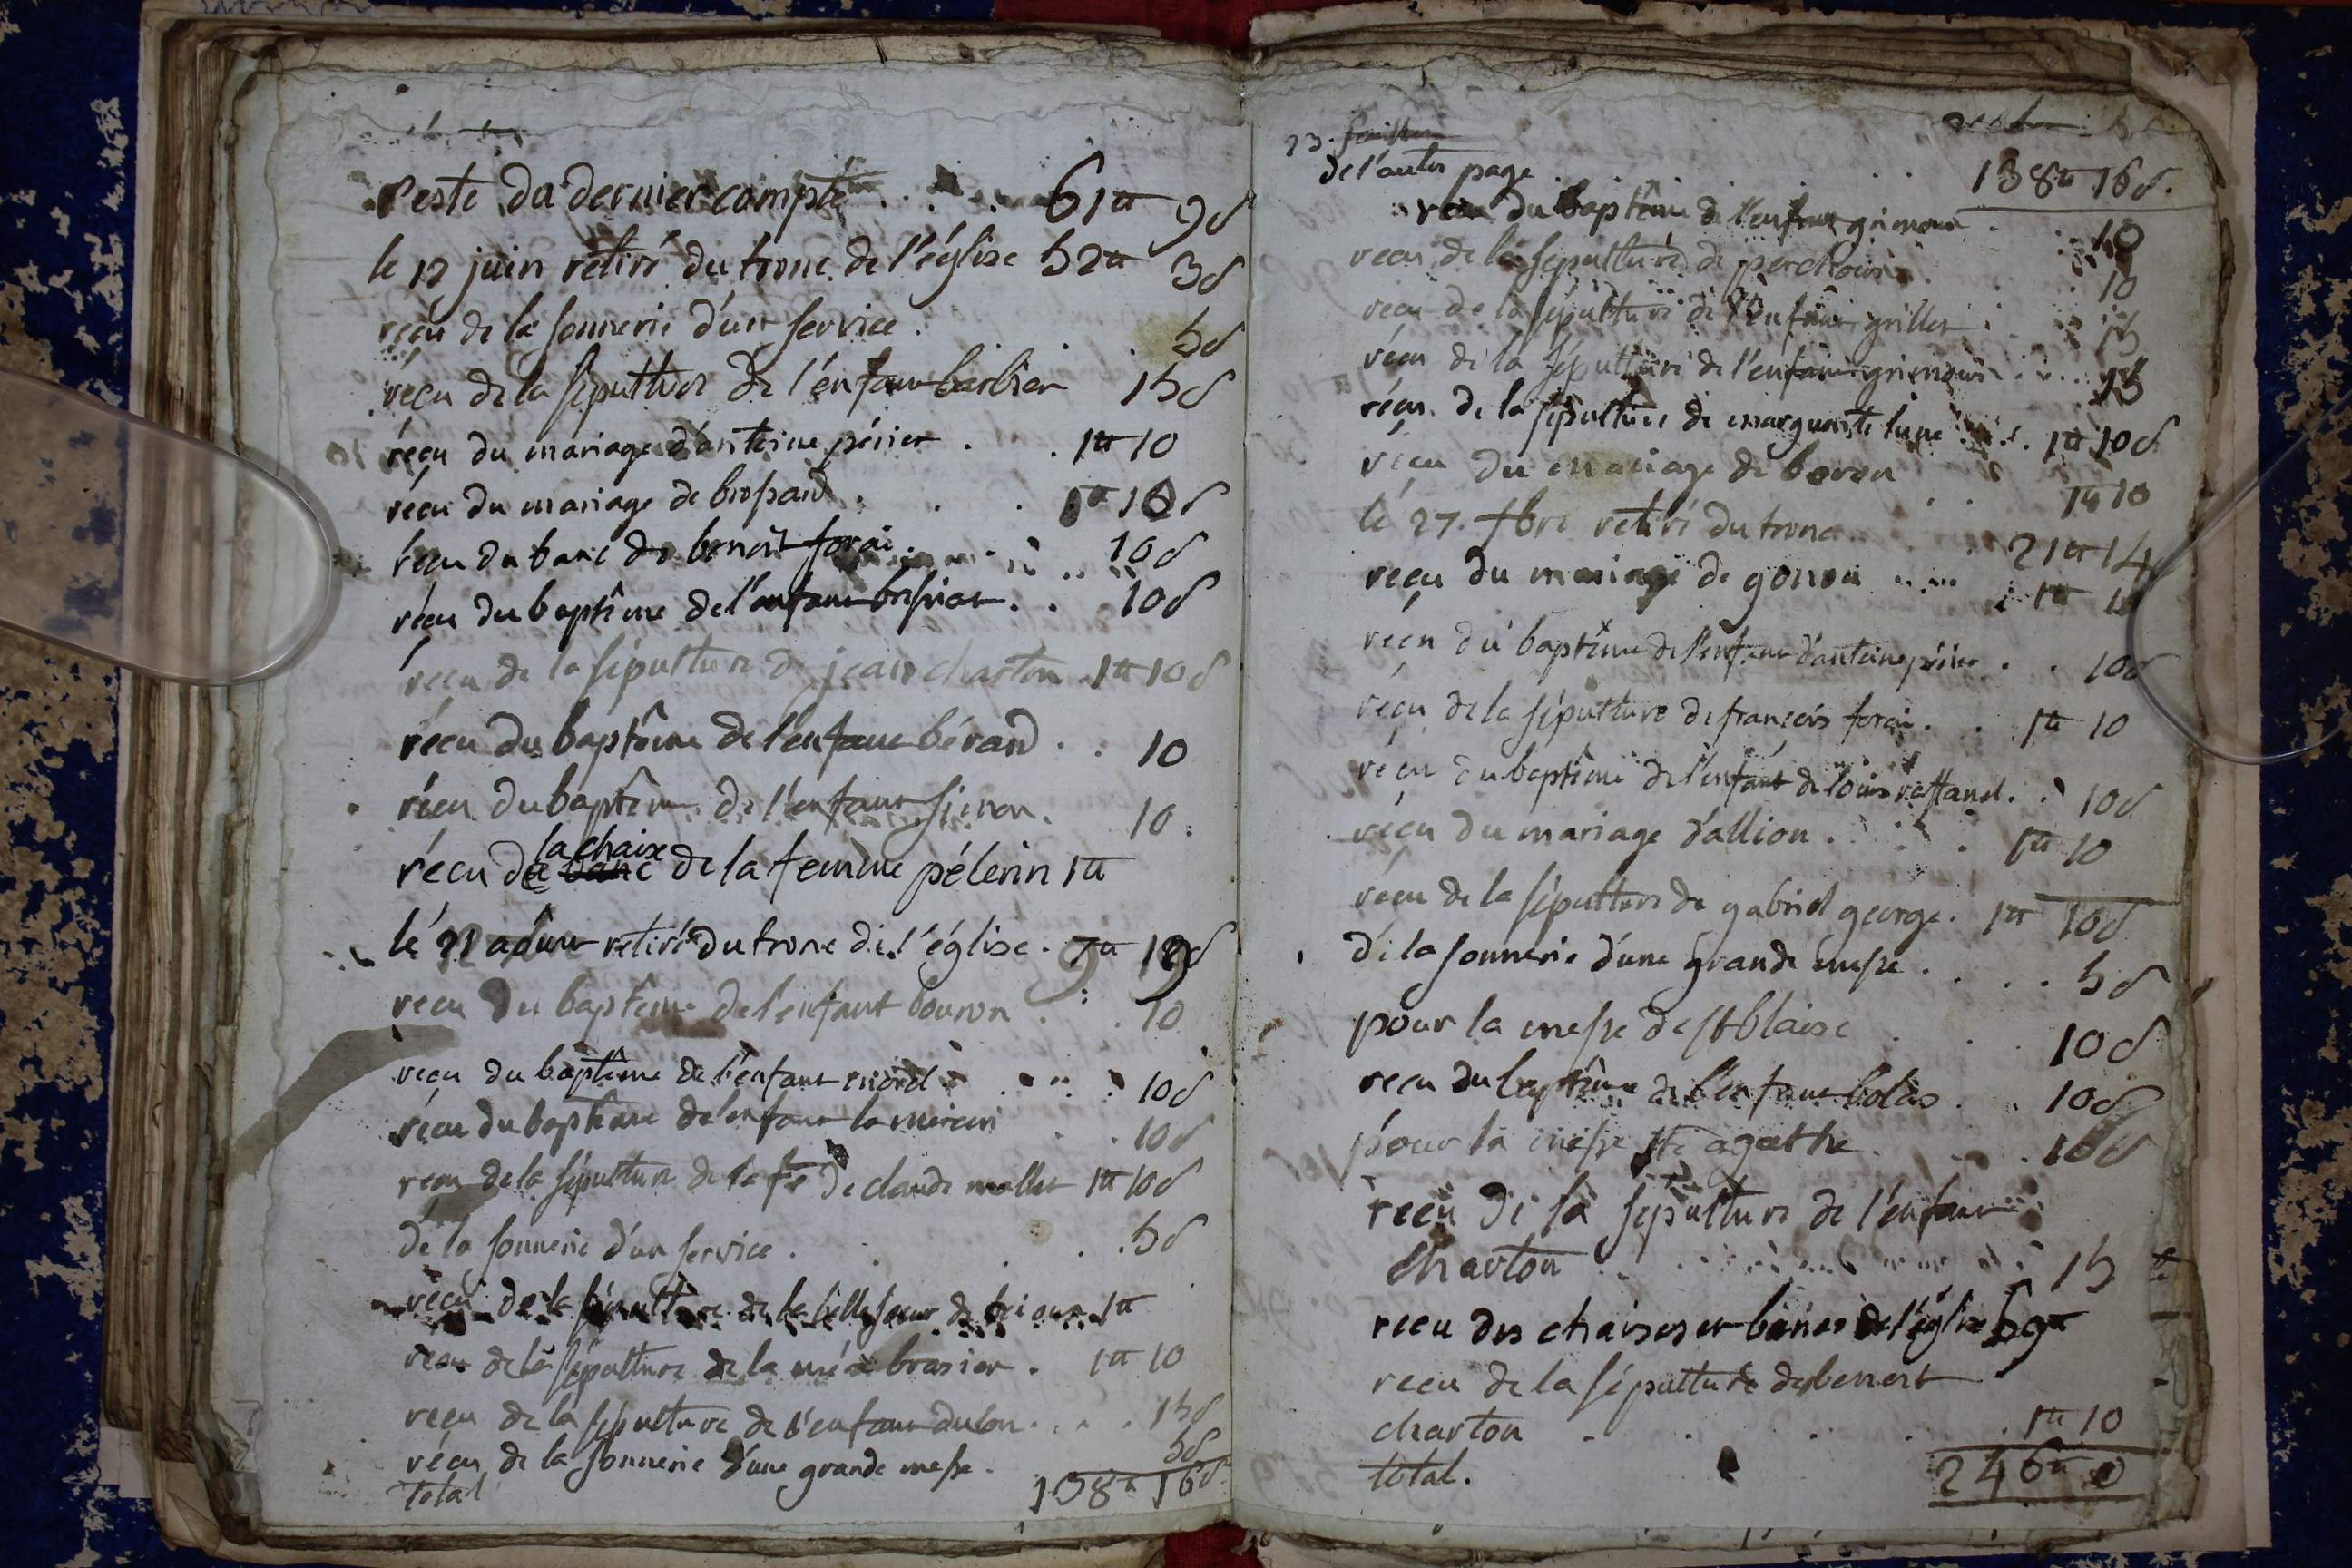 reste du dernier compte . . . . 61# 9s
le 12 juin retiré du tronc de l'église 52# 3s
reçu de la sonnerie d'un service . . . 5s
reçu de la sépulture de l'enfant barbier 15s
reçu du mariage d'antoine périer . . 1# 10
reçu du mariage de brossard . . . 1# 10s
reçu du banc de benoit forai . . . 10s
reçu du baptême de l'enfant . . 10s
reçu de la sépulture de jean charton . 1# 10s
reçu du baptême de l'enfant bérard . . 10
reçu du baptême de l'enfant simon . 10
la chaix
reçu de banc de la femme pélerin 1#
le retiré du tronc de l'église . 19s
reçu du baptême de l'enfant bouron . . 10
reçu du baptême de l'enfant morel . . . 10s
reçu du baptême de l'enfant . . 10s
reçu de la sépulture de la fe de claude mallet 1# 10s
de la sonnerie d'un service . . . 5s
reçu de la sépulture de la belle soeur de 1#
reçu de la sépulture de la mère brasier . 1# 10
reçu de la sépulture de l'enfant dulon . . . 15s
reçu de la sonnerie d'une grande messe . 5s
total 138# 16s
23.
de l'autre page . . . 138# 16s.
reçu du baptême de l'enfant grimoud . . 10
reçu de la sépulture de . . 10
reçu de la sépulture de l'enfant grillet . . 15
reçu de la sépulture de l'enfant . . . 15
reçu de la sépulture de marguerite lune . 1# 10s
reçu du mariage de boron . . 1# 10
le 27. 7bre retiré du tronc . . 21# 14
reçu du mariage de gonon . . . 1# 10
reçu du baptême de l'enfant d'antoine périer . . 10s
reçu de la sépulture de françois forai . . 1# 10
reçu du baptême de l'enfant de louis raffanel . . 10s
reçu du mariage d'allion . . . 1# 10
reçu de la sépulture de gabriel george . 1# 10s
de la sonnerie d'une grande messe . . . . 5s
pour la messe de st blaise . . . 10s
reçu du baptême de l'enfant bolas . . 10s
pour la messe ste agathe . . . 10s
reçu de la sépulture de l'enfant
charton . . . 15
reçu des chaises et bancs de l'église 59#
reçu de la sépulture de benoit
charton . . . . . 1# 10
total. 246# 0